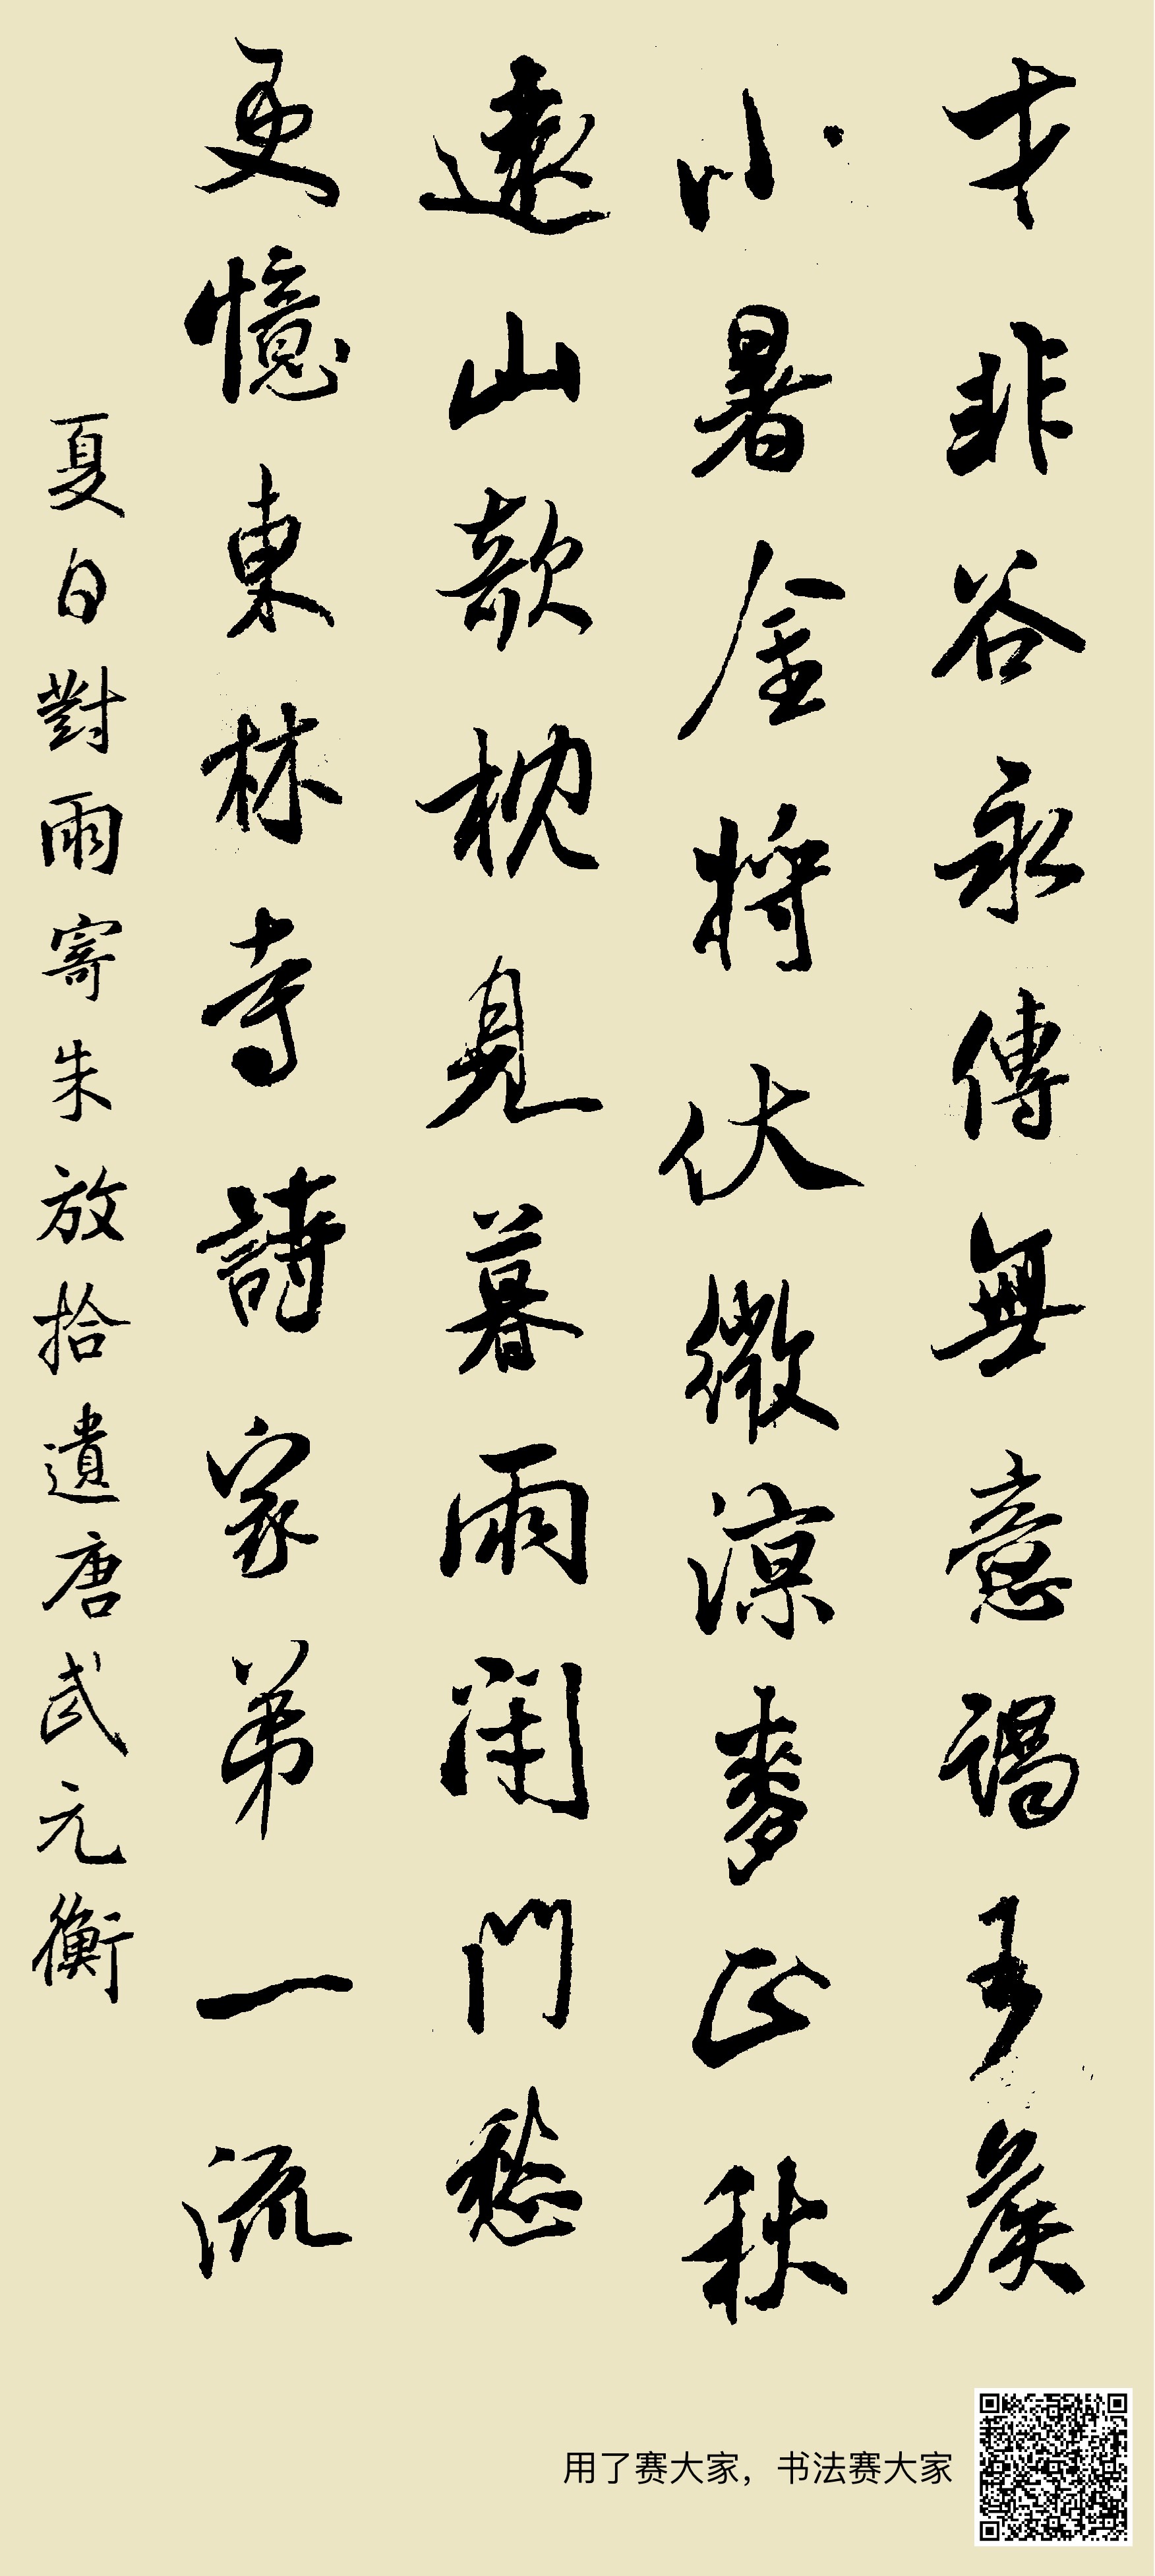 才非谷永傳無意謁王侯
小暑金將伏微涼麥正秋
遠山欹枕見暮雨閉門愁
更憶東林寺詩家第一流
夏日對雨寄朱放拾遺唐武元衡
用了赛大家，书法赛大家